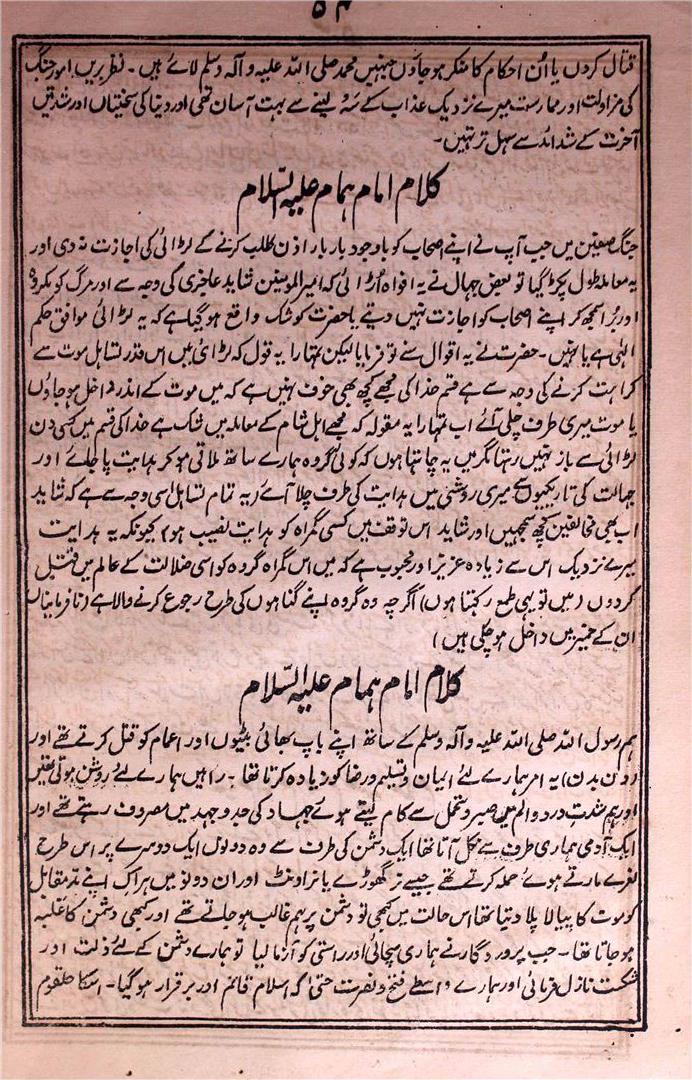 ۵۴
قتال کردوں یا اُن احکام کا منکر ہوجاؤں جنہیں محمد صلی اللہ علیہ و آلہ وسلم لائے ہیں ۔ نظر بریں امور جنگ
کی مزاولت اور ممارست میرے نزدیک عذاب کے سہہ لینے سے بہت آسان تھی اور دنیا کی سختیاں اور شدتیں
آخرت کے شدائد سے سہل تر تہیں ۔
کلام امام ہمام علیہ السّلام
جنگ صفین میں جب آپ نے اپنے اصحاب کو باوجود بار بار اذن طلب کرنے کے لڑائی کی اجازت نہ دی اور
یہ معاملہ طول پکڑ گیا تو بعض جہال نے یہ افواہ اُڑائی کہ امیرالمومنین شاید عاجزی کی وجہ سے اور مرگ کو مکروہ
اور بُرا سمجھ کر اپنے اصحاب کو اجازت نہیں دیتے یا حضرت کو شک واقع ہو گیا ہے کہ یہ لڑائی موافق حکم
الٰہی ہے یا نہیں ۔ حضرت نے یہ اقوال سنے تو فرمایا لیکن تمہارا یہ قول کہ لڑائی میں اس قدر تساہل موت سے
کراہت کرنے کی وجہ سے ہے قسم خدا کی مجھے کچھ بھی خوف نہیں ہے کہ میں موت کے اندر داخل ہو جاؤں
یا موت میری طرف چلی آئے اب تمہارا یہ مقولہ کہ مجھے اہل شام کے معاملہ میں شک ہے خدا کی قسم میں کسی دن
لڑائی سے باز نہیں رہتا مگر میں یہ چاہتا ہوں کہ کوئی گروہ ہمارے ساتھ ملاقی ہو کر ہدایت پا جائے اور
جہالت کی تاریکیوں میں میری روشنی میں ہدایت کی طرف چلا آئے (یہ تمام تساہل اسی وجہ سے ہے کہ شاید
اب بھی مخالفین کچھ سمجہیں اور شاید اس توقف میں کسی گمراہ کو ہدایت نصیب ہو) کیونکہ یہ ہدایت
میرے نزدیک اس سے زیادہ عزیز اور محبوب ہے کہ میں اس گمراہ گروہ کو اسی ضلالت کے عالم میں قتیل
کردوں (میں تو یہی طمع رکہتا ہوں) اگرچہ وہ گروہ اپنے گناہوں کی طرح رجوع کرنے والا ہے (نافرمانیاں
ان کے خمیر میں داخل ہو چکی ہیں)
کلام امام ہمام علیہ السّلام
ہم رسول اللہ صلی اللہ علیہ و آلہ وسلم کے ساتھ اپنے باپ بھائی بیٹیوں اور اعمام کو قتل کرتے تھے اور
(دن بدن) یہ امر ہمارے لئے ایمان و تسلیم و رضا کو زیادہ کرتا تھا ۔ راہیں ہمارے لئے روشن ہوتی تھیں
اور ہم شدت درد و الم میں صبر و تحمل سے کام لیتے ہوئے جہاد کی جد و جہد میں مصروف رہتے تھے اور
ایک آدمی ہماری طرف سے نکل آتا تھا ایک دشمن کی طرف سے وہ دونوں ایک دوسرے پر اس طرح
نعرے مارتے ہوئے حملہ کرتے تھے جیسے نر گھوڑے یا نر اونٹ اور ان دونو میں ہر اک اپنے مد مقابل
کو موت کا پیالا پلا دیتا تھا اس حالت میں کبھی تو دشمن پر ہم غالب ہو جاتے تھے اور کبھی دشمن کا غلبہ
ہو جاتا تھا ۔ جب پروردگار نے ہماری سچائی اور راستی کو آزما لیا تو ہمارے دشمن کے لئے ذلت اور
شکست نازل فرمائی اور ہمارے واسطے فتح و نصرت حتیٰ کہ اسلام قائم اور برقرار ہو گیا ۔ اسکا حلقوم